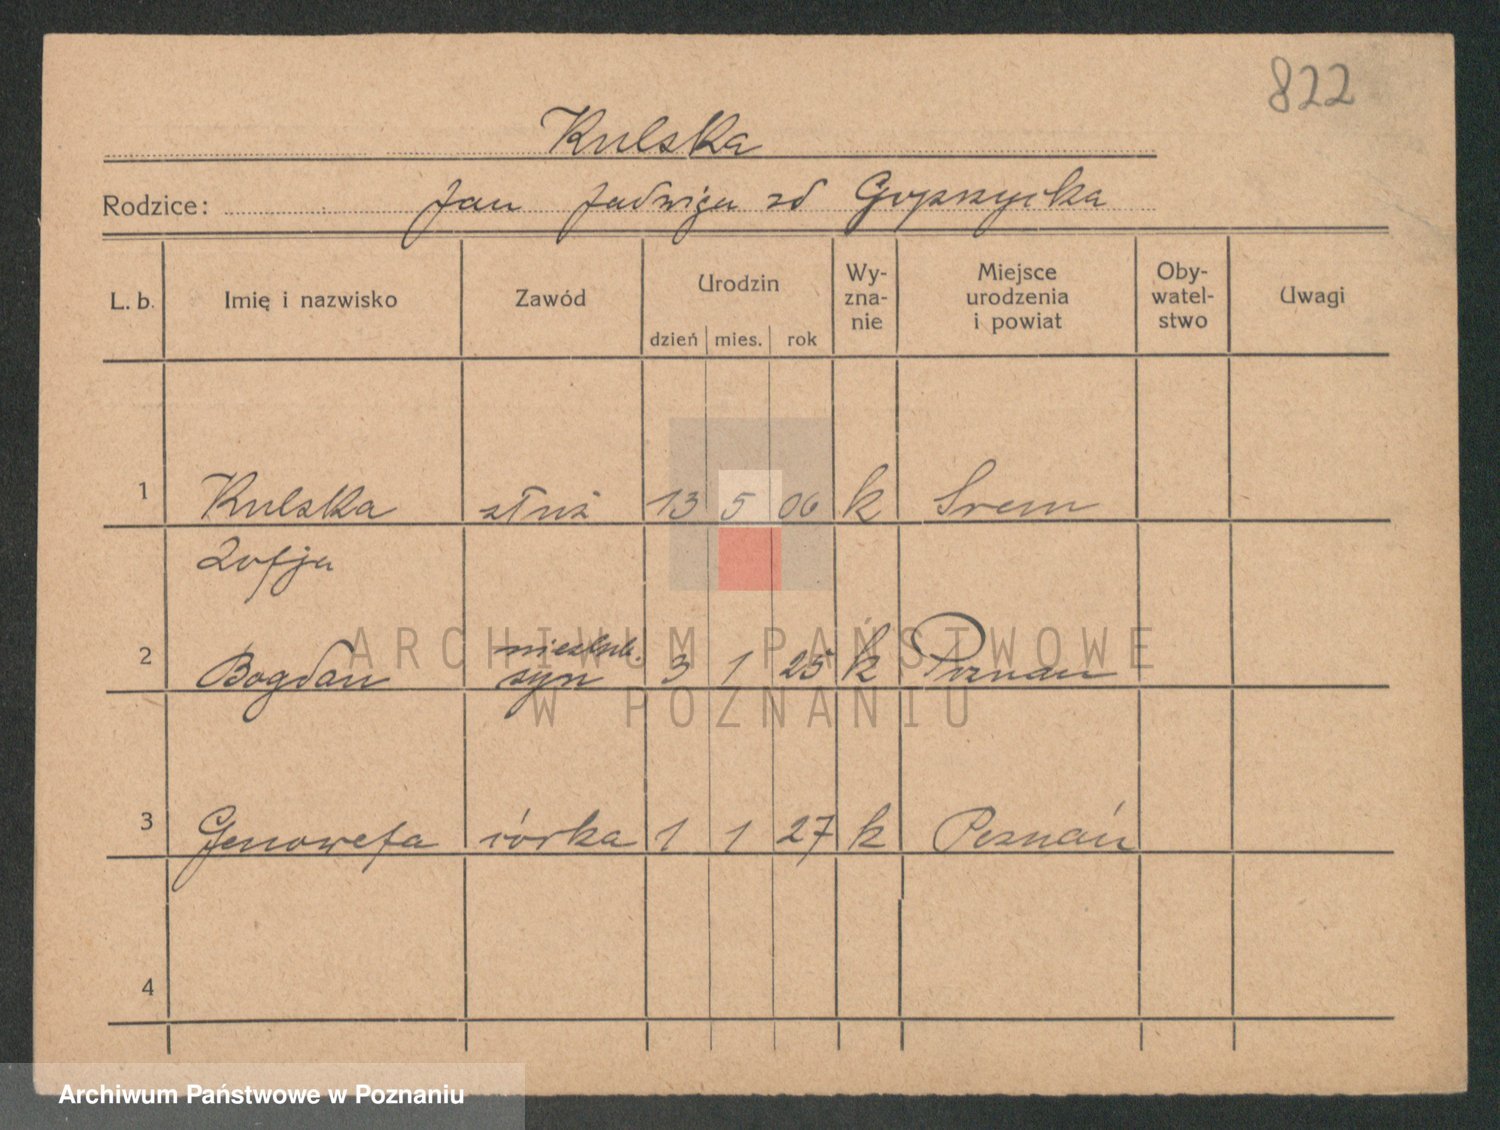 822
Kulska
Rodzice: Jan Jadwiga zd
L. b. Imię i nazwisko Zawód Urodzin Wy-zna-nie Miejsce urodzenia i powiat Oby-watel-stwo Uwagi
dzień mies. rok
1 Kulska służ 13 5 06 k Srem
Zofja
nieślub.
2 Bogdan syn 3 1 25 k Poznań
3 Genowefa córka 1 1 27 k Poznań
4
ARCHIWUM PAŃSTWOWE
W POZNANIU
Archiwum Państwowe w Poznaniu